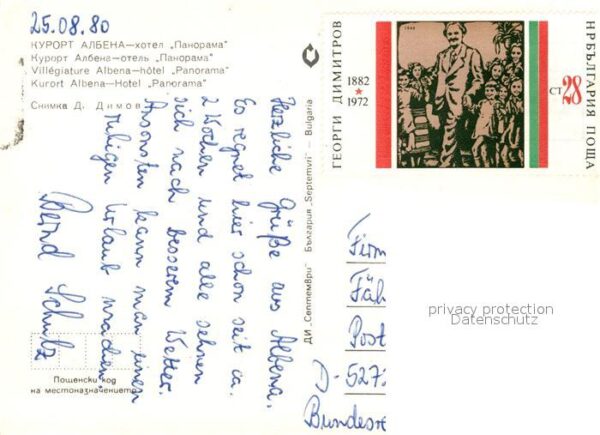 25.08.80
КУРОРТ АЛБЕНА—хотел „Панорама“
Курорт Албена—отель „Панорама“
Villégiature Albena—hôtel „Panorama“
Kurort Albena—Hotel „Panorama“
Снимка Д. Димов
Herzliche Grüße aus Albena.
Es regnet hier schon seit ca.
2 Wochen und alle sehnen
sich nach besserem Wetter.
Ansonsten kann man einen
ruhigen Urlaub machen.
Bernd Schulz
Пощенски код
на местоназначението
ДИ „Септември“ България „Septemvri“ — Bulgaria
ГЕОРГИ ДИМИТРОВ
1882
★
1972
НРБЪЛГАРИЯ ПОЩА
СТ 28
Firm
Fäh
Post
D-527
Bundesre
privacy protection
Datenschutz